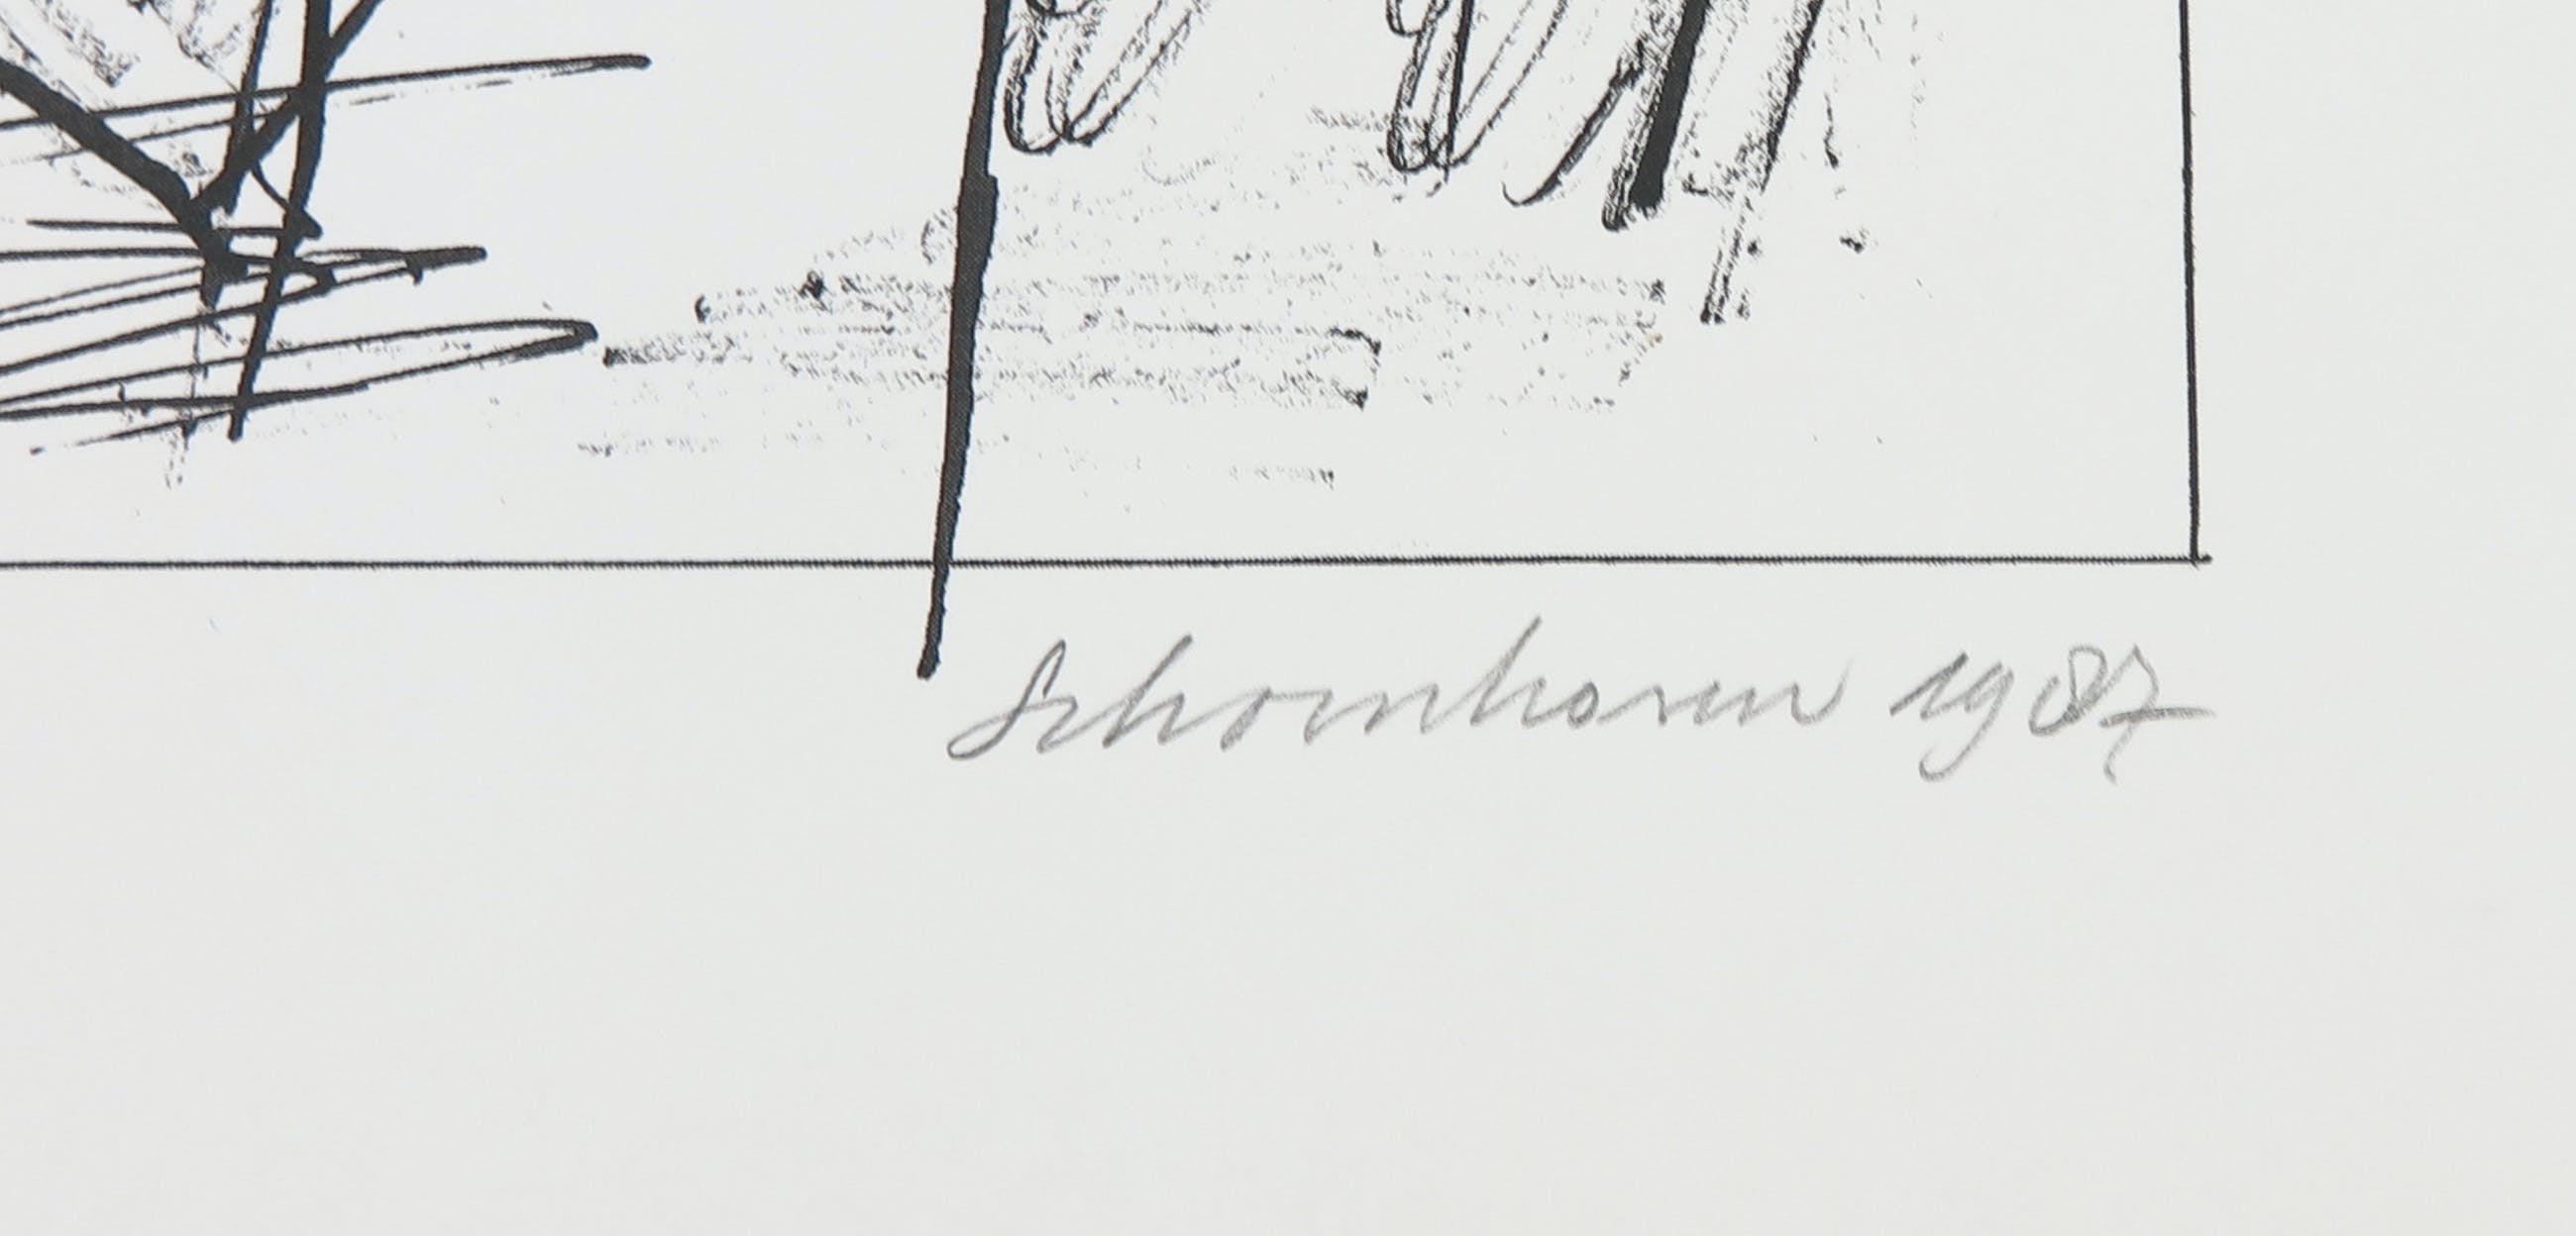 Schoenhoven 1987